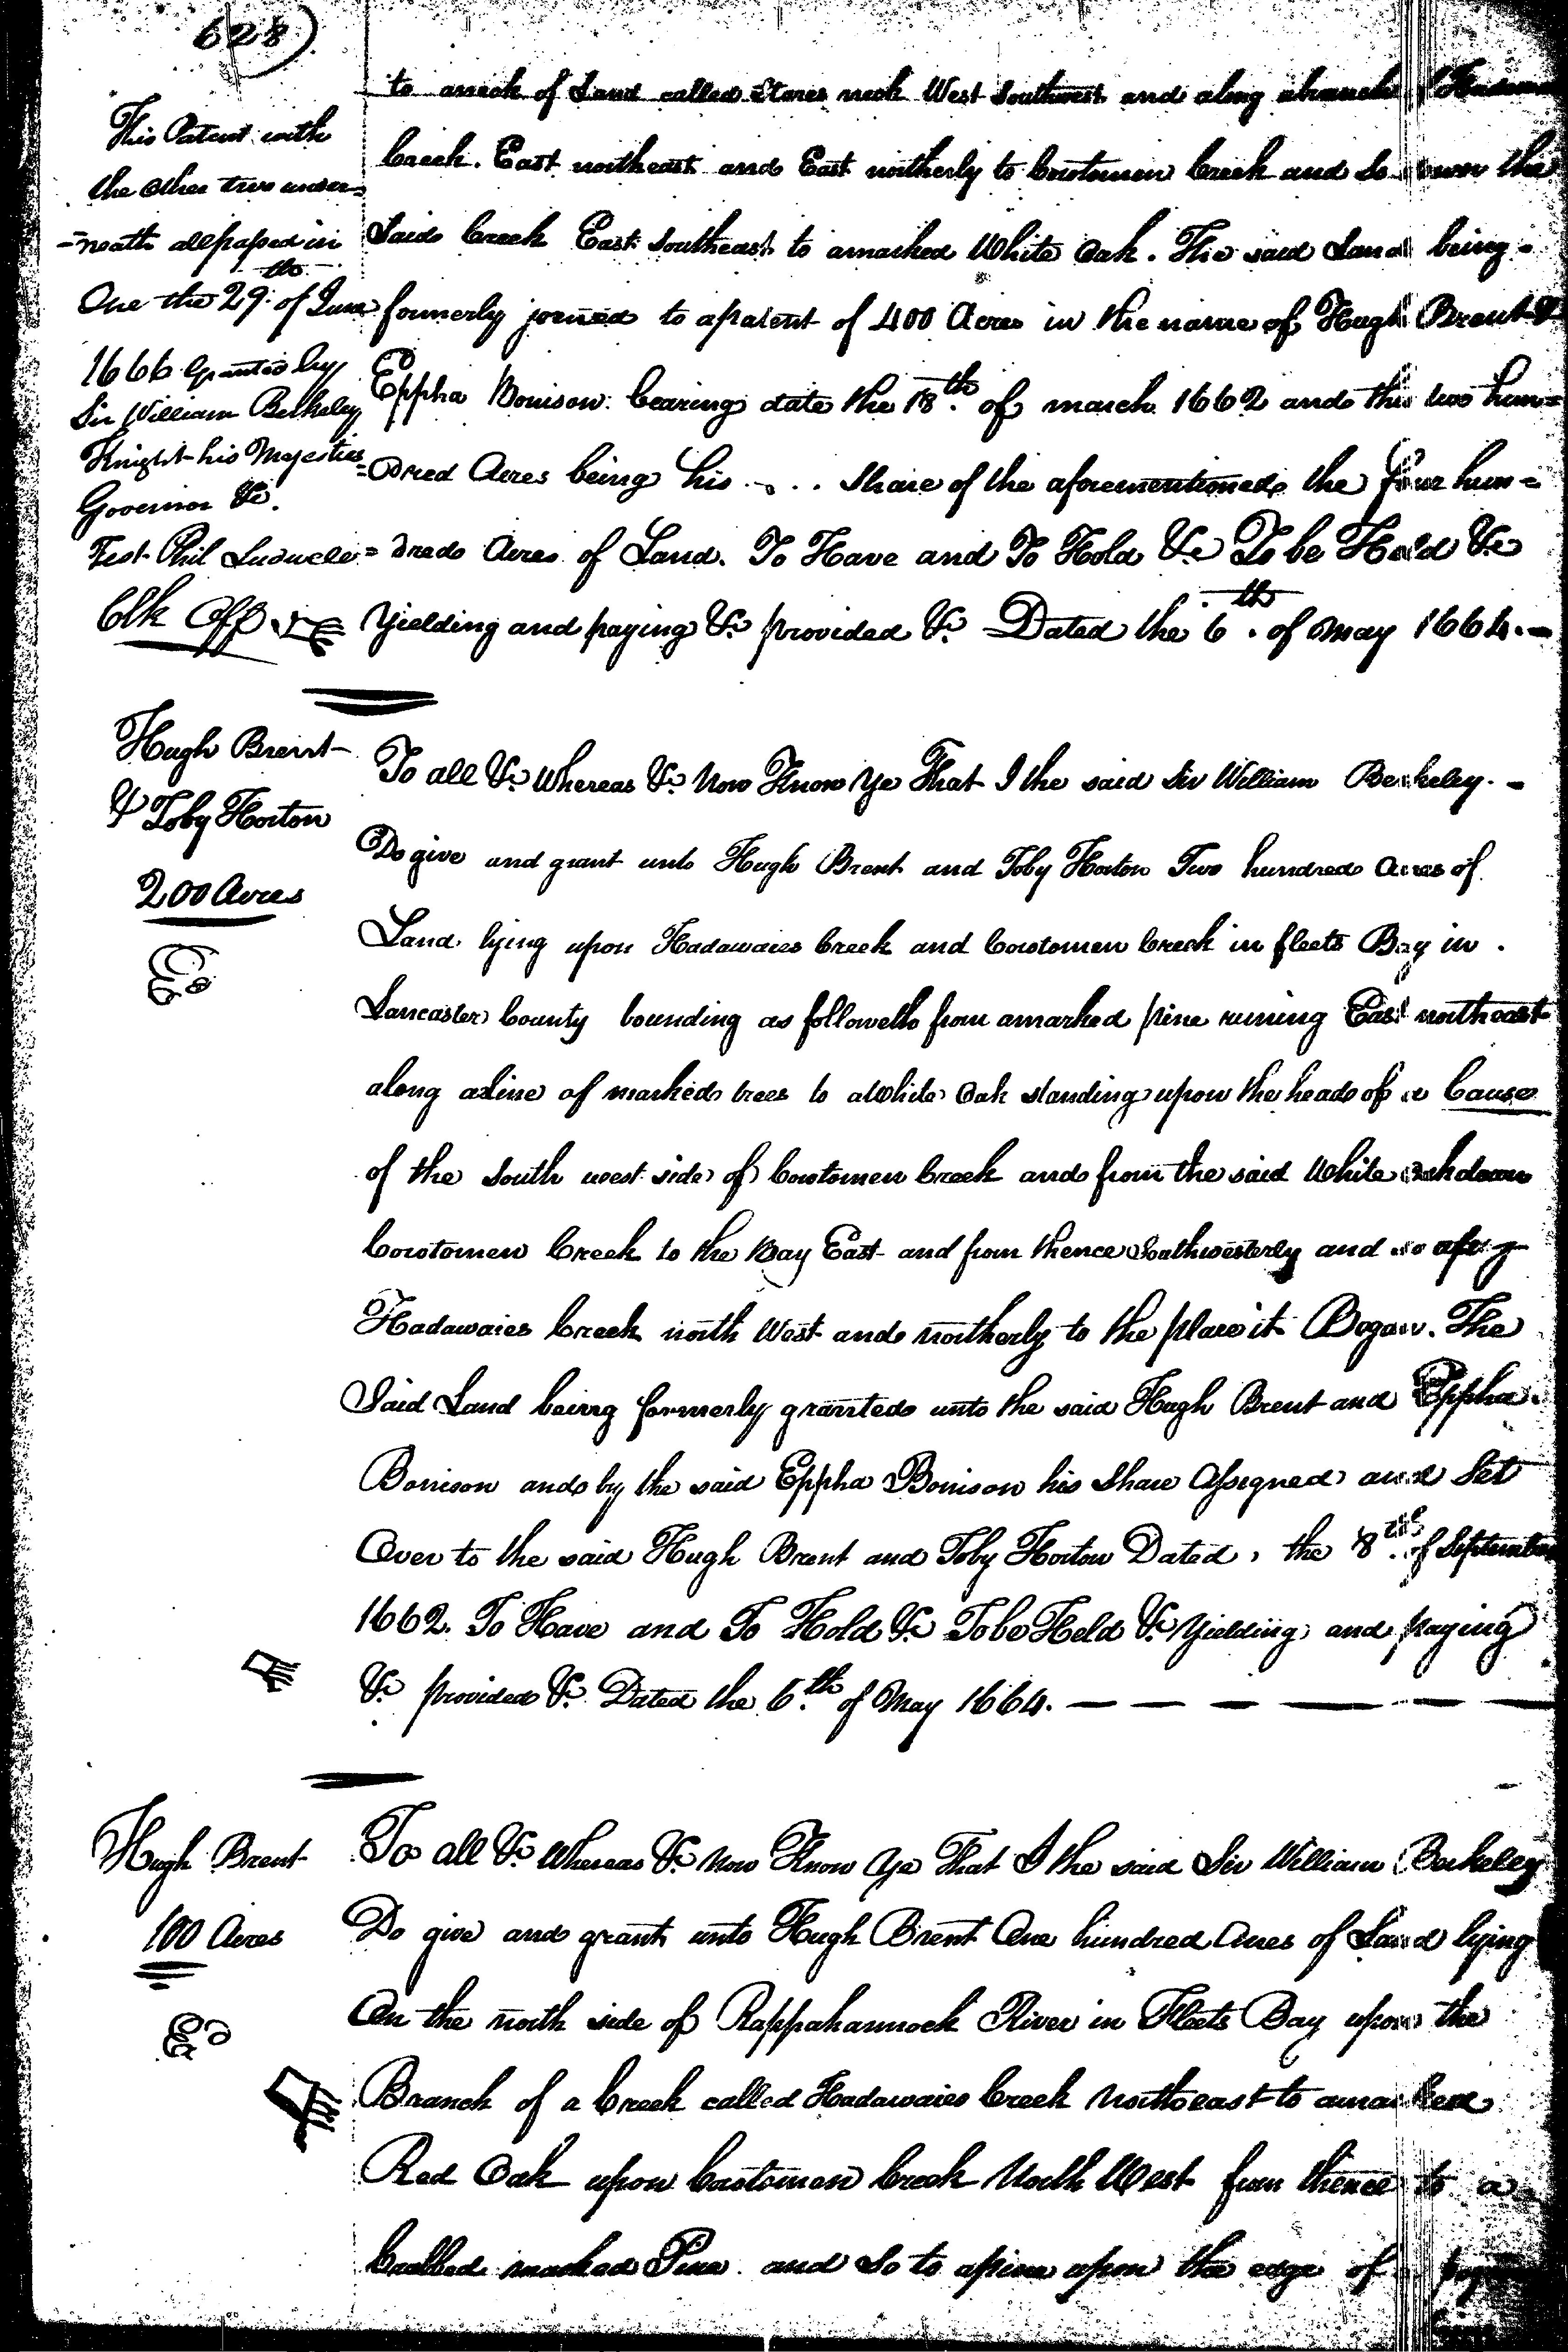 628)
This Patent with
the other two under=
=neath all passed in
One the 29th of June
1666 Granted by
Sir William Berkeley
Knight his Majesties
Governor &c.
Test Phil Ludwell
Clk Off
to aneck of Land called Stones neck West Southwest and along abranch of
Creek. East northeast and East northerly to Corotomen Creek and So down the
Said Creek East Southeast to amarked White Oak. The said Land being
formerly joined to apatent of 400 Acres in the name of Hugh Brent &
Eppha Bonison bearing date the 18th of march 1662 and this two hun=
=dred Acres being his . . . Share of the aforementioned the four hun=
=dred Acres of Land. To Have and To Hold &c To be Held &c
Yielding and paying &c provided &c Dated the 6th of May 1664.—
Hugh Brent
& Toby Horton
200 Acres
To all &c Whereas &c Now Know Ye That I the said Sir William Berkeley. -
Do give and grant unto Hugh Brent and Toby Horton Two hundred Acres of
Land lying upon Hadawaies Creek and Corotomen Creek in fleets Bay in .
Lancaster County bounding as followeth from amarked pine runing East northeast
along aline of marked trees to aWhite Oak standing upon the head of a Cause
of the South west side of Corotomen Creek and from the said White Oak down
Corotomen Creek to the Bay East and from thence Southwesterly and so up
Hadawaies Creek north West and northerly to the place it Began. The
Said Land being formerly granted unto the said Hugh Brent and Eppha
Bonison and by the said Eppha Bonison his Share Assigned and Set
Over to the said Hugh Brent and Toby Horton Dated, the 8th of September
1662. To Have and To Hold &c To be Held &c Yielding and paying
&c provided &c Dated the 6th of May 1664. — — — — — —
Hugh Brent
100 Acres
To all &c Whereas &c Now Know Ye That I the said Sir William Berkeley
Do give and grant unto Hugh Brent One hundred Acres of Land lying
On the north side of Rappahannock River in Fleets Bay upon the
Branch of a Creek called Hadawaies Creek Northeast to amarked
Red Oak upon Corotomen Creek North West from thence to a
marked Pine and So to apine upon the edge of